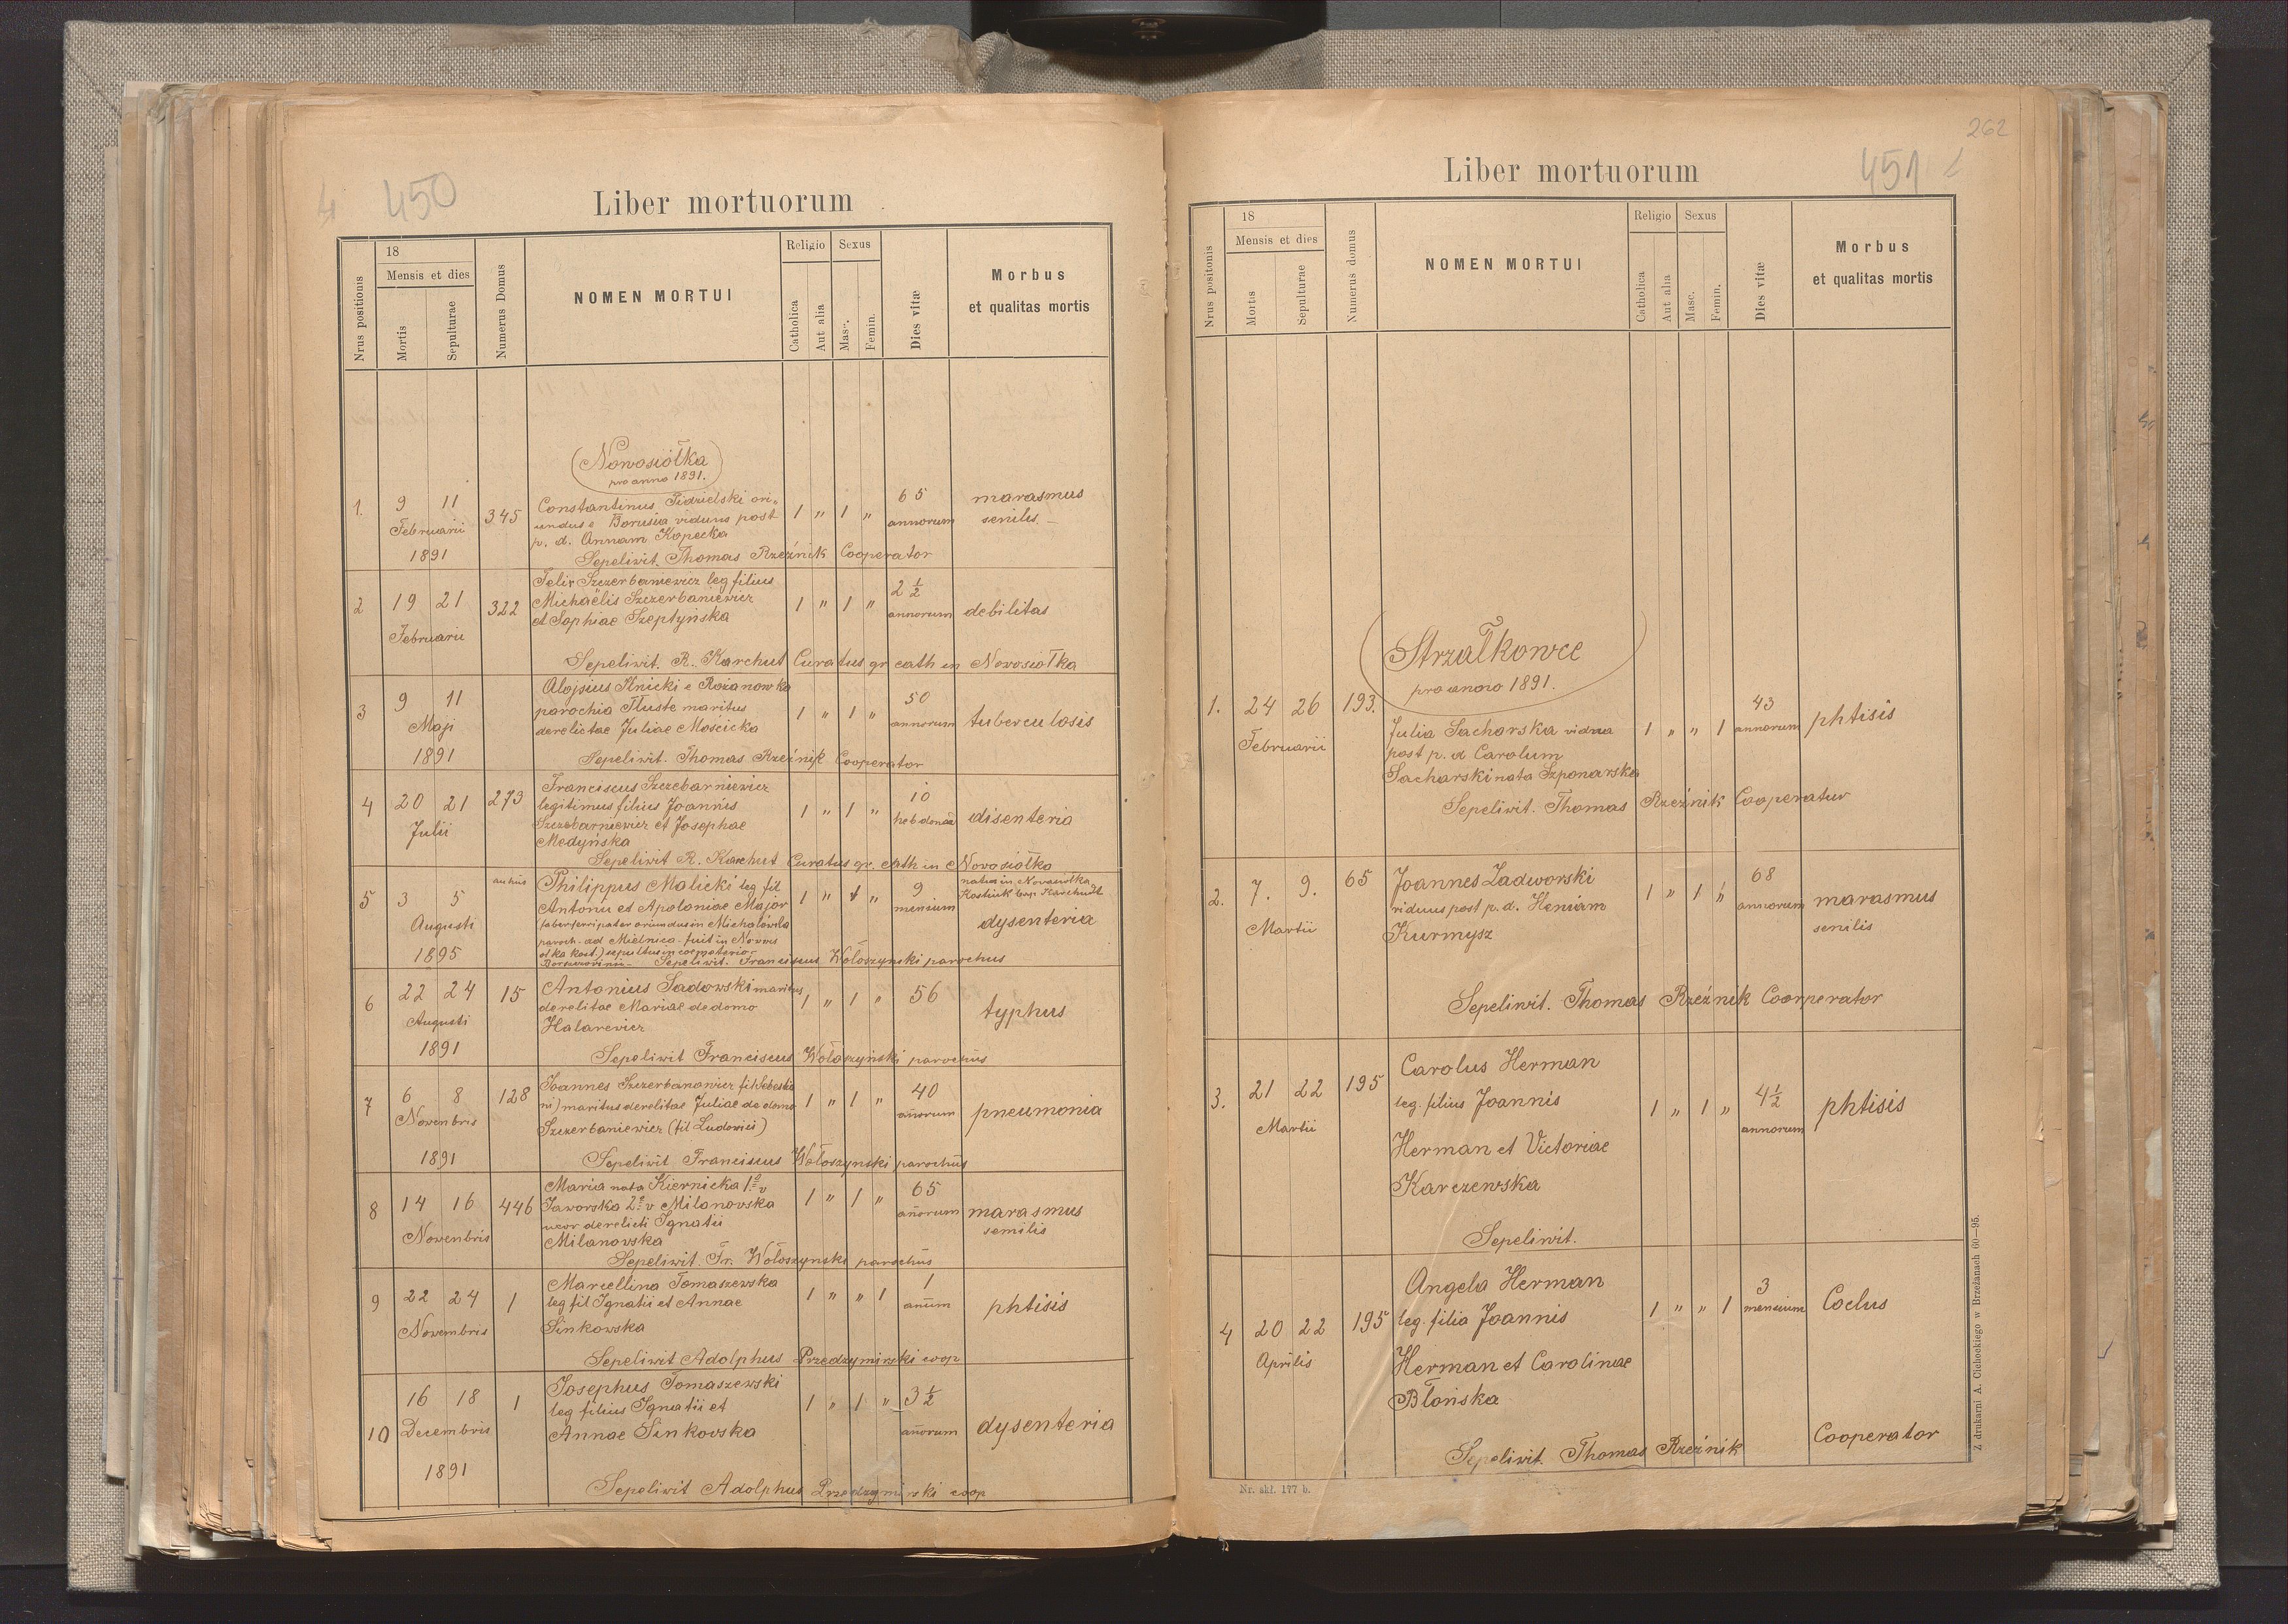 450
Liber mortuorum
Nrus positionis
18
Mensis et dies
Mortis
Sepulturae
Numerus Domus
NOMEN MORTUI
Religio
Catholica
Aut alia
Sexus
Masc.
Femin.
Dies vitæ
Morbus
et qualitas mortis
Nowosiołka
pro anno 1891.
1. 9 11 345 Constantinus Tidzielski ori- 1 " 1 " 65 marasmus
Februarii undus e Borusia viduus post annorum senilis.
1891 p. d. Annam Kopecka
Sepelivit Thomas Rzeźnik Cooperator
2 19 21 322 Felix Szczerbaniewicz leg filius 1 " 1 " 2 ½ debilitas
Februarii Michaëlis Szczerbaniewicz annorum
et Sophiae Szeptyńska
Sepelivit. R. Karchut Curatus gr cath in Nowosiołka
3 9 11 Alojsius Knicki e Rożanowka 1 " 1 " 50 tuberculosis
Maji parochia Tłuste maritus annorum
1891 derelictae Juliae Mościcka
Sepelivit. Thomas Rzeźnik Cooperator
4 20 21 273 Franciscus Szczebarniewicz 1 " 1 " 10 disenteria
Julii legitimus filius Joannis hebdomad
Szczebarniewicz et Josephae
Medyńska
Sepelivit R. Karchut Curatus gr. cath in Nowosiołka
5 3 5 Philippus Malicki leg fil 1 " 1 " 9 natus in Nowosiołka
Augusti Antonii et Apoloniae Major mensium Kostiuk bap. Karchudt
1895 (faber ferri pater oriundus in Michałówka dysenteria
paroch. ad Mielnica - fuit in Nowosi
ołka kost.) sepultus in coemeterio
Sepelivit. Franciscus Wołoszynski parochus
6 22 24 15 Antonius Sadowski maritus 1 " 1 " 56 typhus
Augusti derelitae Mariae de domo
1891 Halarewicz
Sepelivit Franciscus Wołoszyński parochus
7 6 8 128 Joannes Szczerbanowicz fil Sebastia 1 " 1 " 40 pneumonia
Nowenbris ni) maritus derelitae Juliae de domo añorum
1891 Szczerbaniewicz (fil Ludowici)
Sepelivit Franciscus Wołoszynski parochus
8 14 16 446 Maria nata Kiernicka 1º v 1 " 1 " 65 marasmus
Nowenbris Jaworska 2º v Milanovska añorum senilis
uxor derelicti Ignatii
Milanovska
Sepelivit. Fr. Wołoszynski parochus
9 22 24 1 Marcellina Tomaszewska 1 " " 1 1 phtisis
Novembris leg fil Ignatii et Annae anum
Sinkowska
Sepelivit Adolphus Przedzymirski coop
10 16 18 1 Josephus Tomaszewski 1 " 1 " 3 ½ dysenteria
Decembris leg filius Ignatii et añorum
1891 Annae Sinkovska
Sepelivit Adolphus Przedzymirski coop
262
451
Liber mortuorum
Nrus positonis
18
Mensis et dies
Mortis
Sepulturae
Numerus domus
NOMEN MORTUI
Religio
Catholica
Aut alia
Sexus
Masc.
Femin.
Dies vitæ
Morbus
et qualitas mortis
Strzałkowce
pro anno 1891.
1. 24 26 193. Julia Sacharska vidua 1 " " 1 43 phtisis
Februarii post p. d Carolum annorum
Sacharski nata Szponarska
Sepelivit. Thomas Rzeźnik Cooperatur
2. 7. 9. 65 Joannes Zadworski 1 " 1 " 68 marasmus
Martii viduus post p. d. Heniam annorum senilis
Kurmysz
Sepelivit. Thomas Rzeźnik Coorperator
3. 21 22 195 Carolus Herman 1 " 1 " 4½ phtisis
Martii leg. filius Joannis annorum
Herman et Victoriae
Karczewska
Sepelivit.
4 20 22 195 Angela Herman 1 " " 1 3 Coclus
Aprilis leg. filia Joannis mensium
Herman et Carolinae
Błońska
Sepelivit. Thomas Rzeźnik Cooperator
Nr. skł. 177 b.
Z drukarni A. Cichockiego w Brzeżanach 60—95.